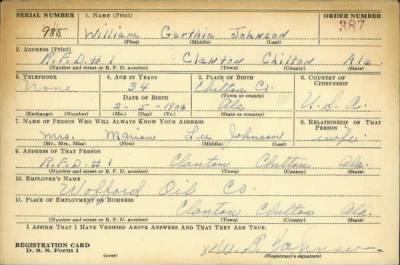 SERIAL NUMBER 1. NAME (Print) ORDER NUMBER
985 William Johnson 387
(First) (Middle) (Last)
2. ADDRESS (Print)
R.F.D. # 1 Clanton Chilton Ala
(Number and street or R. F. D. number) (Town) (County) (State)
3. TELEPHONE 4. AGE IN YEARS 5. PLACE OF BIRTH 6. COUNTRY OF CITIZENSHIP
None 34 Chilton Co.
DATE OF BIRTH (Town or county)
2-5-1906 Ala U.S.A.
(Exchange) (Number) (Mo.) (Day) (Yr.) (State or country)
7. NAME OF PERSON WHO WILL ALWAYS KNOW YOUR ADDRESS 8. RELATIONSHIP OF THAT PERSON
Mrs. Marion Lee Johnson wife
(Mr., Mrs., Miss) (First) (Middle) (Last)
9. ADDRESS OF THAT PERSON
R.F.D. # 1 Clanton Chilton Ala.
(Number and street or R. F. D. number) (Town) (County) (State)
10. EMPLOYER'S NAME
Wofford Oil Co.
11. PLACE OF EMPLOYMENT OR BUSINESS
Clanton Chilton Ala.
(Number and street or R. F. D. number) (Town) (County) (State)
I AFFIRM THAT I HAVE VERIFIED ABOVE ANSWERS AND THAT THEY ARE TRUE.
REGISTRATION CARD
D. S. S. Form 1 (over) (Registrant's signature)